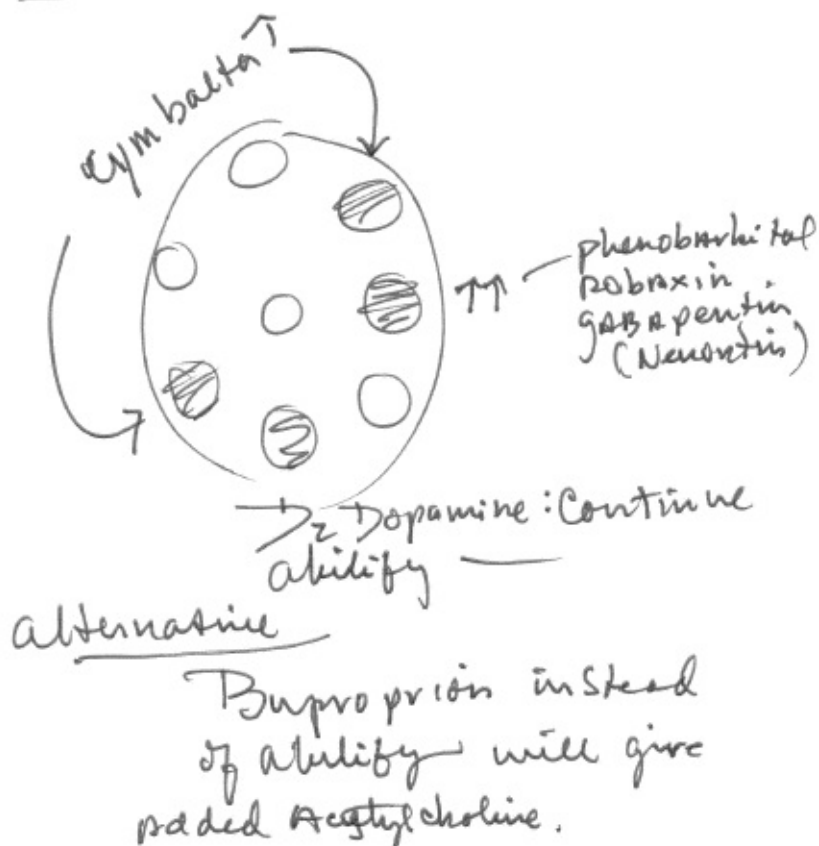 Cymbalta ↑
↑↑ — phenobarbital
Robaxin
GABApentin
(Neurontin)
D2 Dopamine: Continue
abilify —
alternative
Buproprion instead
of abilify will give
added Acetylcholine.